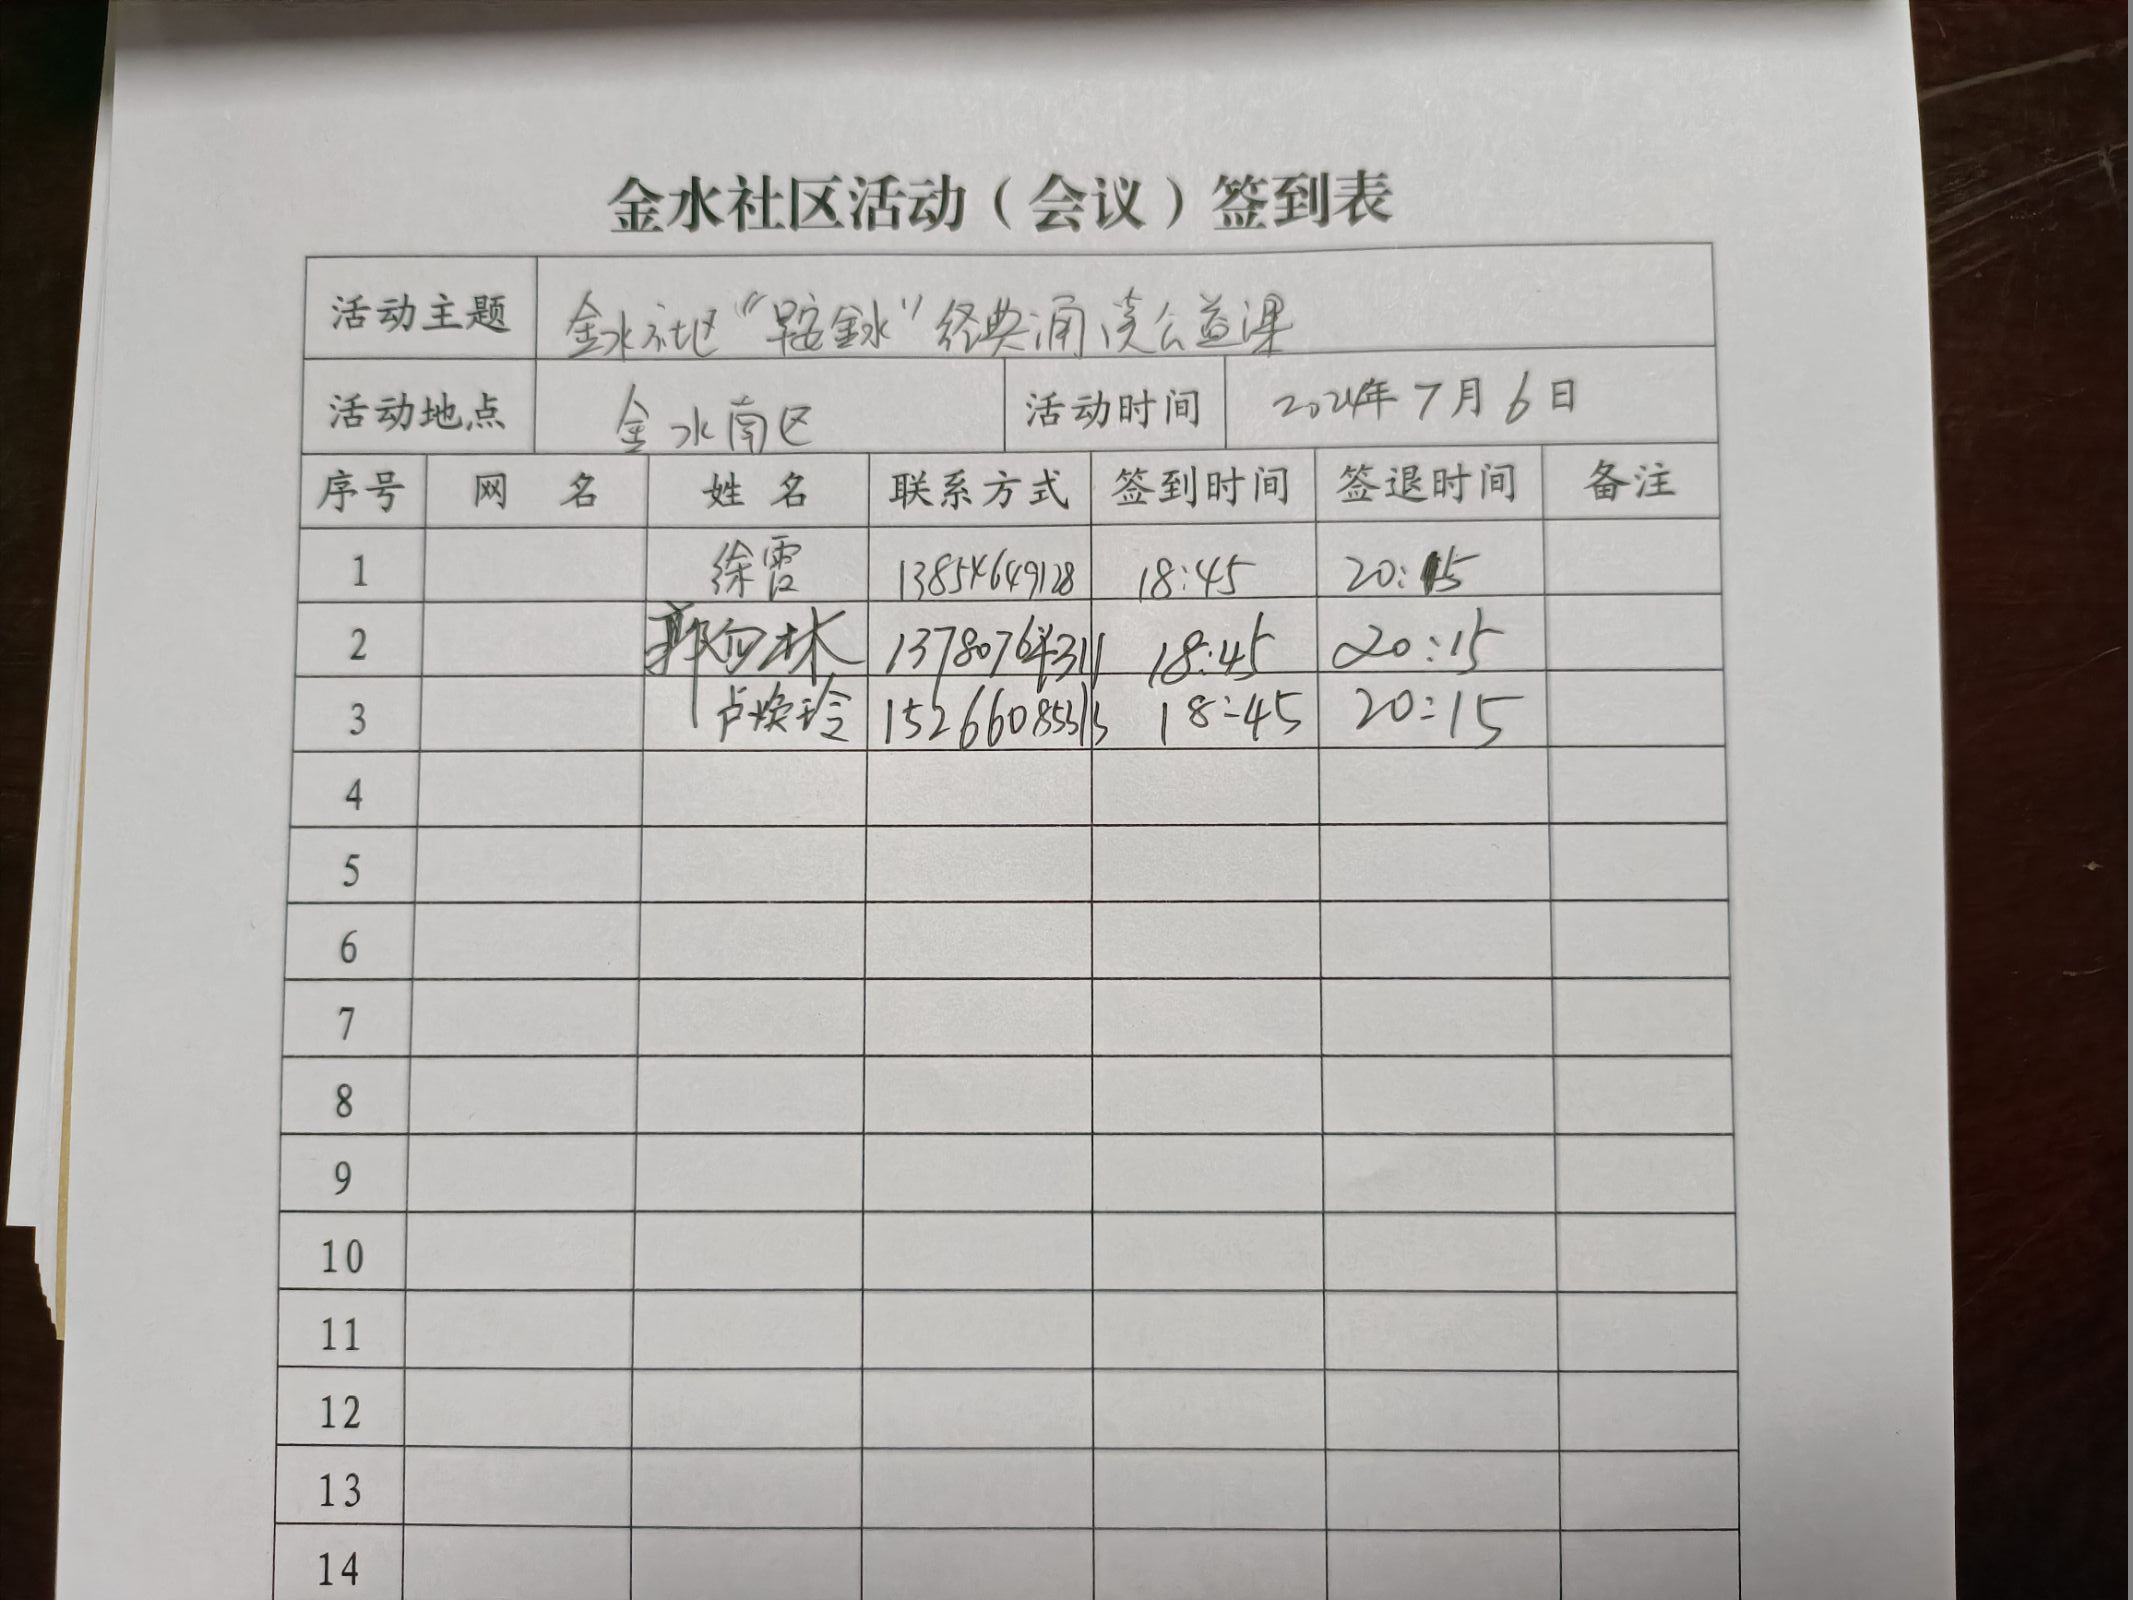 金水社区活动（会议）签到表
活动主题 金水社区“鞍金水”经典诵读公益课
活动地点 金水南区 活动时间 2024年7月6日
序号 网 名 姓 名 联系方式 签到时间 签退时间 备注
1 徐霞 13854649128 18:45 20:15
2 郭向林 18:45 20:15
3 卢焕玲 18:45 20:15
4
5
6
7
8
9
10
11
12
13
14